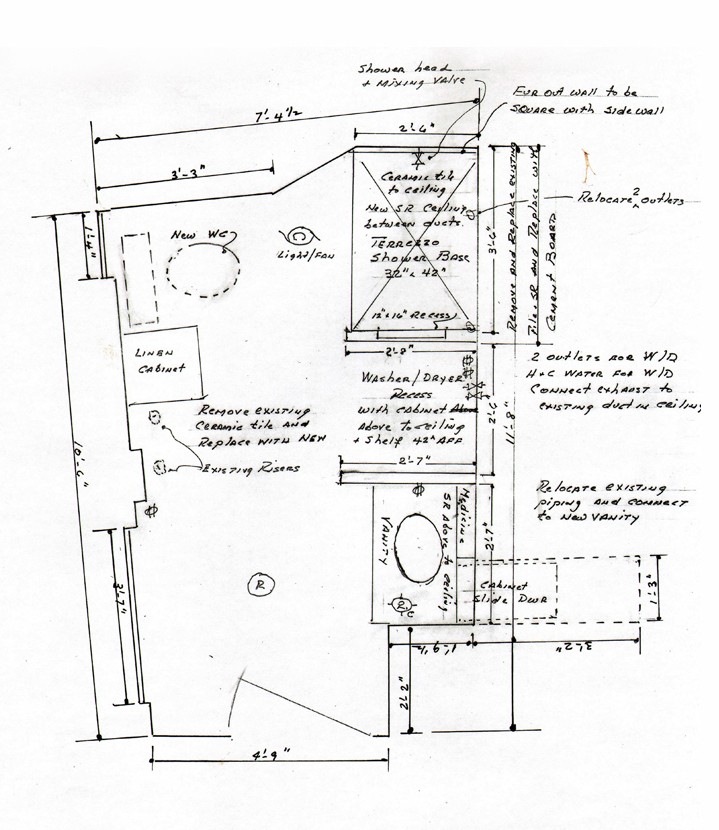 Shower head
+ Mixing Valve
Fur out wall to be
SQUARE with side wall
7'-4 1/2
2'-4"
3'-3"
Ceramic tile
to ceiling
New SR Ceiling
between ducts.
TERRAZZO
Shower Base
32" x 42"
12" x 16" Recess
3'-6"
Remove and Replace existing
Tile + SR and Replace with
Cement Board
Relocate 2 outlets
1'-4"
New WC
C
Light/Fan
Linen
Cabinet
2'-8"
Washer/Dryer
Recess
with cabinet Above
Above to ceiling
+ Shelf 42" AFF
2'-6"
11'-8"
2 outlets for W/D
H+C Water for W/D
Connect exhaust to
existing duct in ceiling
Remove existing
Ceramic tile and
Replace with New
Existing Risers
10'-6"
2'-7"
Medicine
SR Above to ceiling
VANITY
2'-7"
Relocate existing
piping and connect
to New Vanity
Cabinet
Slide Dwr
1'-3"
R
R
C
3'-7"
3'-2"
2'-2"
4'-9"